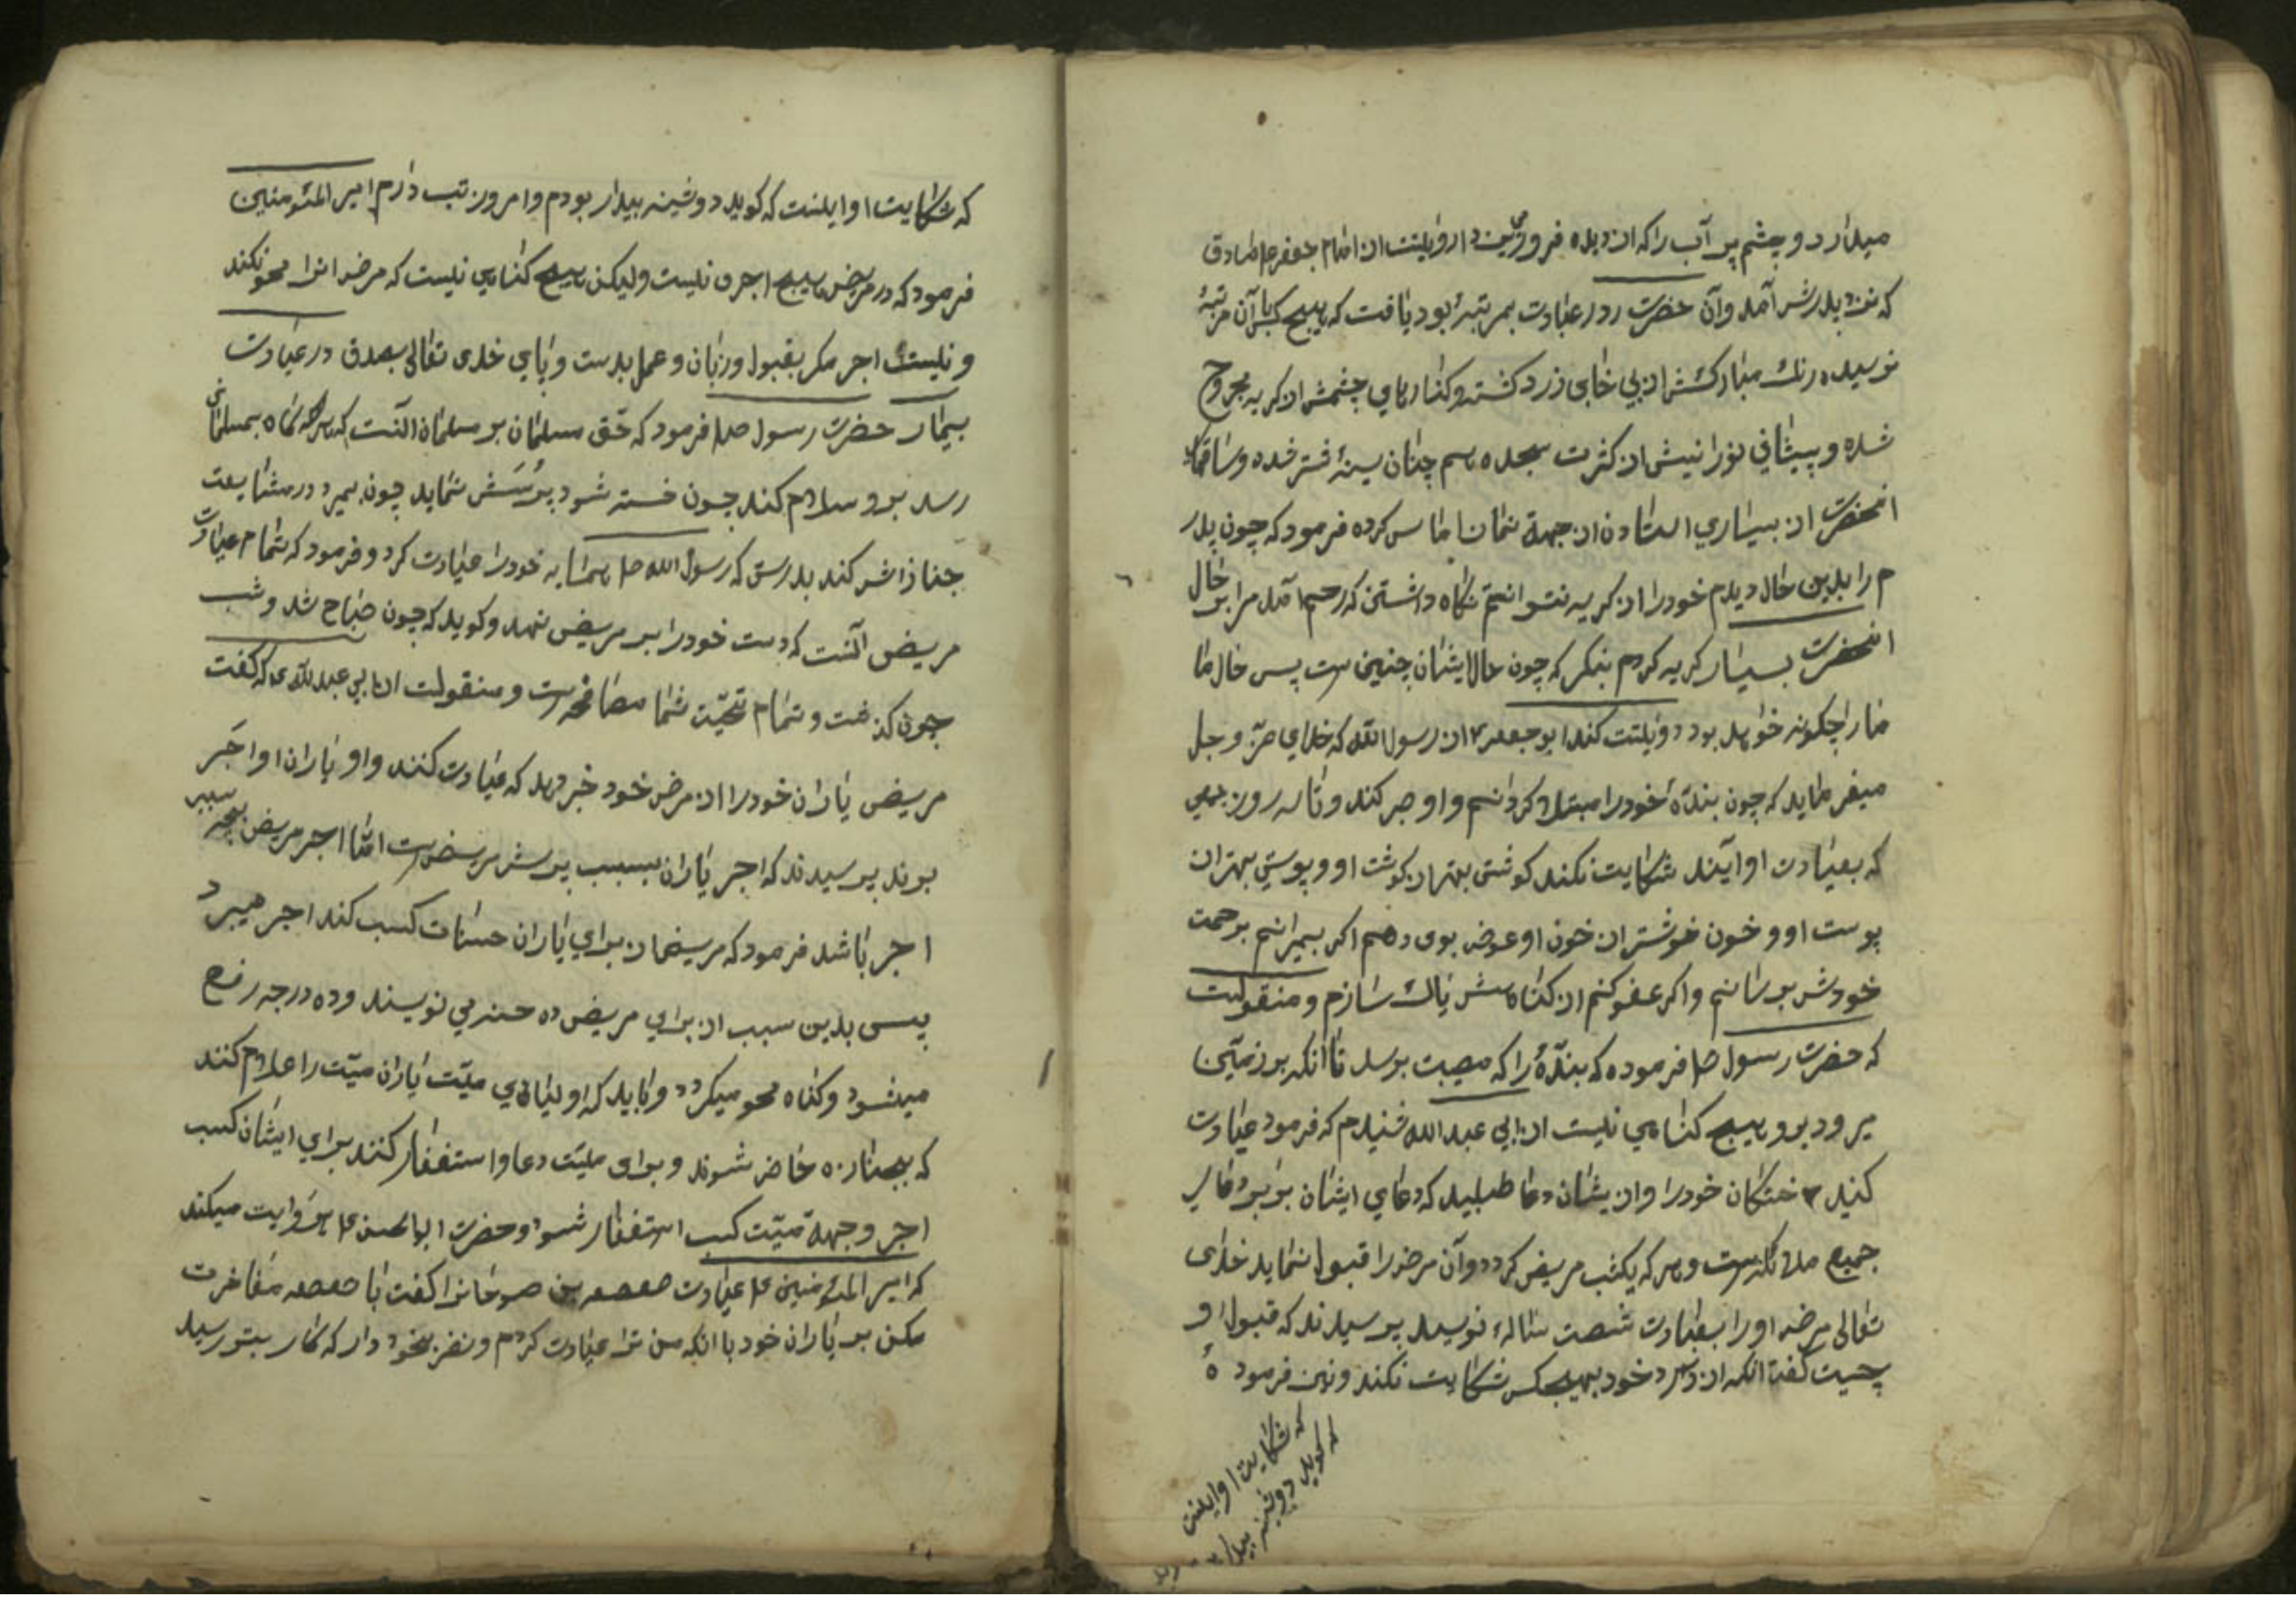 میدارد دو چشم پر آب را که از دیده فرو ریخت روایتست از امام جعفر صادق
که نزد پدرش آمد و آن حضرت در عبادت بمرتبهٔ بود یافت که هیچ کس بآن مرتبهٔ
نرسیده رنك مبارکش از بی خابی زرد کشته و کنارهای چشمش از کریه مجروح
شده و پیشانی نورانیش از کثرت سجده هم چنان سینهٔ شتر شده و ساقهای
انحضرت از بسیاری استادن از جهة نماز اماس کرده فرمود که چون پدر
م را بدین حال دیدم خود را از کریه نتوانستم نکاه داشتن که رحم آمد مرا بر حال
انحضرت بسیار کریه کردم بنکر که چون حال ایشان چنین ست پس حال ما
مارا چکونه خواهد بود روایتست کند ابو جعفر ع از رسول الله که خدای عز و جل
میفرماید که چون بندهٔ خود را مبتلا کردانیم و او صبر کند و تا سه روز بهمی
که بعیادت او آیند شکایت نکند کوشتی بهتر از کوشت او و پوستی بهتر از
پوست او و خون خوشتر از خون او عوض بوی دهم اکر بمیرانم برحمت
خودش برسانم و اکر عفو کنم از کناهش پاك سازم و منقولست
که حضرت رسول ص فرموده که بندهٔ را که مصیبت برسد تا انکه بر زمین
میرود برو هیچ کناهی نیست از ابی عبد الله شنیدم که فرمود عیادت
کنید خستکان خود را و از یشان دعا طلبید که دعای ایشان برابر دعای
جمیع ملائکه ست و هر که یکشب مریض کردد و آن مرض را قبول نماید خدای
تعالی مرض او را بعبادت شصت ساله نویسد پرسیدند که قبول او
چیست کفت انکه از درد خود بهیچکس شکایت نکند و نیز فرمود
که شکایت او اینست
که کوید دوشینه بیدار
که شکایت او اینست که کوید دوشینه بیدار بودم و امروز تب دارم امیر المئومنین
فرمود که در مرض هیچ اجری نیست ولیکن هیچ کناهی نیست که مرض انرا محو نکند
و نیست اجر مکر بقبول و زبان و عمل بدست و پای خدی تعالی بصدق در عیادت
بیمار حضرت رسول صلم فرمود که حق مسلمان بر مسلمان آنست که هرکاه بمسلمانی
رسد برو سلام کند چون خسته شود پرسش نماید چون بمیرد در مشایعت
جنازاش کند بدرستی که رسول الله ص همسایه خود را عیادت کرد و فرمود که تمام عیادت
مریض آنست که دست خود را بر مریض نهد و کوید که چون صباح شد و شب
چون کذشت و تمام تحیّت شما مصافحه ست و منقولست از ابی عبد الله ع که کفت
مریض یاران خود را از مرض خود خبر دهد که عیادت کنند و او یاران او اجر
بوند پرسیدند که اجر یاران بسبب پرسش مریض ست امّا اجر مریض بچه سبب
اجر باشد فرمود که مریض از برای یاران حسنات کسب کند اجر میبرد
پس بدین سبب از برای مریض ده حسنه می نویسند و ده درجه رفع
میشود و کناه محو میکردد و باید که اولیاای میّت یاران میّت را اعلام کنند
که بجنازه حاضر شوند و برای میّت دعا و استغفار کنند برای ایشان کسب
اجر و جهة میّت کسب استغفار شود و حضرت ابا الحسن ع روایت میکند
که امیر المئومنین ع عیادت صعصعه بن صوحانرا کفت یا صعصعه مفاخرت
مکن بر یاران خود با انکه من ترا عیادت کردم و نظر بخود دار که کار بتو رسید